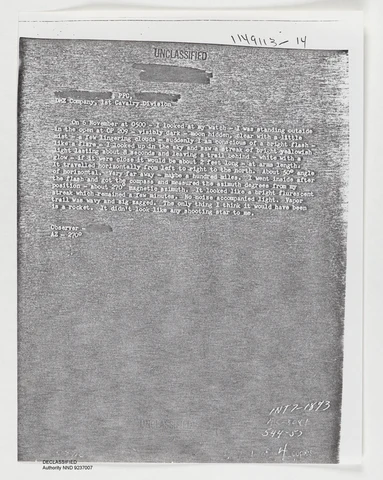 1149113-14
UNCLASSIFIED
PFC,
Company, 1st Cavalry Division
On 6 November at 0500 - I looked at my watch - I was standing outside
in the open at OP 209 - visibly dark - moon hidden like - with a little
mist - a few lingering clouds. Suddenly I am conscious of a bright flash
like a flare - I looked up in the sky and saw a streak of bright yellowish
light lasting about 2 seconds and leaving a trail behind - white with a
glow - if it were close it would be about 2 feet long - at arms length.
It travelled horizontally from left to right to the north. About 50° angle
of horizontal. Very far away - maybe a hundred miles. I went inside after
the flash and got the compass and measured the azimuth degrees from my
position - about 270° magnetic azimuth. It looked like a bright flurescent
break which remained a few minutes. No noise accompanied light. Vapor
trail was wavy and zig zagged. The only thing I think it would have been
is a rocket. It didn't look like any shooting star to me.
Observer -
AZ - 270°
INT 7-1893
544-57
4
UNCLASSIFIED
DECLASSIFIED
Authority NND 9237007